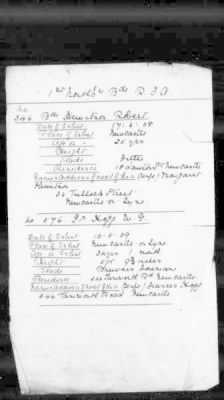 1st North'n Bde R.F.A.
No
246 Bdr Robert
Date of Enlist 17.6.08
Place of Enlist Newcastle
Age on " 20 yrs
Height
Trade Fitter
Residence Newcastle
Name & Address of Next of Kin Margaret
36 Tullock Street
Newcastle on Tyne.
No 576. Hogg W G
Date of Enlist 10.5.09
Place of Enlist Newcastle on Tyne
Age on Enlist month
Height 5ft 9¾ inches
Trade Brewers Foreman
Residence 244 Tamworth Rd Newcastle
Name & Address of Next of Kin (Wife) Frances Hogg
244 Tamworth Road Newcastle